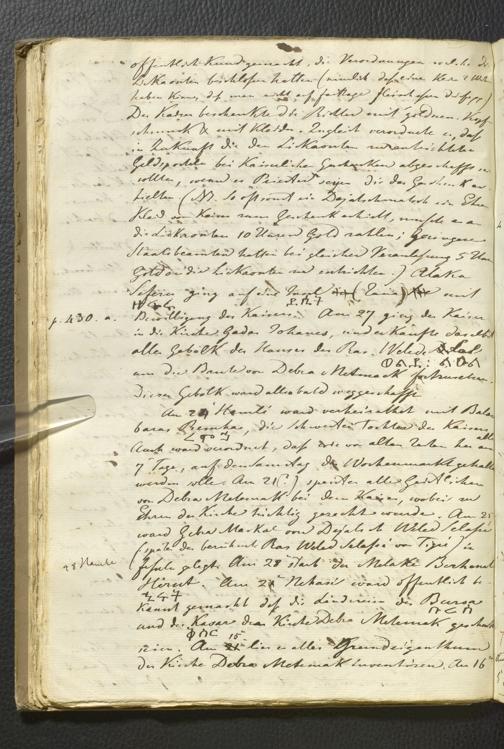 öffentlich Kund gemacht, die Verordnungen welche die
Likaonten beschlossen hatten (nämlich daß eine
haben kann, daß man nicht auf fasttage fleisch essen dürfe)
Der Kaiser beschenkte die Richter mit goldnen Kopf-
schmuck & mit Kleider. Zugleich verordnete er, daß
in Zukunft die den Likaonten zu entrichtete
Geldsportel bei Kaiserlichen Geschenken abgeschafft seyn
sollten, wenn es Priester seyen die das Geschenk er-
hielten (NB. So oft sonst ein Dejatschmatsch ein Ehren
Kleid vom Kaiser zum Geschenk erhielt, mußte er an
die Likaonten 10 Unzen Gold zahlen; geringere
Staatsbeamten hatten bei gleicher Veranlassung 5 Unzen
Gold an die Likaonten zu entrichten.) Alaka
ging auf eine Insel mit
p. 430. a. Bewilligung des Kaisers. Am 27 ging der Kaiser
in die Kirche Gadas Johanes, und er kaufte daselbst
alles Gebälk des Hauses des Ras Weled
um die Baute von Debra Metmack fortzusetzen
dieses Gebälk ward alsobald weggeschafft
Am 24 Hamle ward verheirathet mit Bala
baras die Schwester Tochter des Kaisers,
Auch ward verordnet, daß wie vor alten Zeiten her alle
7 Tage, auf den Samstag der Wochenmarkt gehalten
werden solle. Am 21(?) speisten alle Geistlichen
von Debra Metemack bei dem Kaiser, wobei zu
Ehren der Kirche tüchtig gezecht wurde. Am 25
ward Gebra Maskal von Dejatch Weled Selassé
(später der berühmte Ras Weled Selassé von Tigré) in
28 Hamle fesseln gelegt. Am 28 starb der Melaké Berhanat
Hirut. Am 21 Nehasé ward öffentlich be-
kannt gemacht daß die Ländereien des Bursa
und des der Kirche Debra Metemak geschenkt
seien. Am 15 ließ er alles Grundeigenthum
der Kirche Debra Metemak inventiren. Am 16